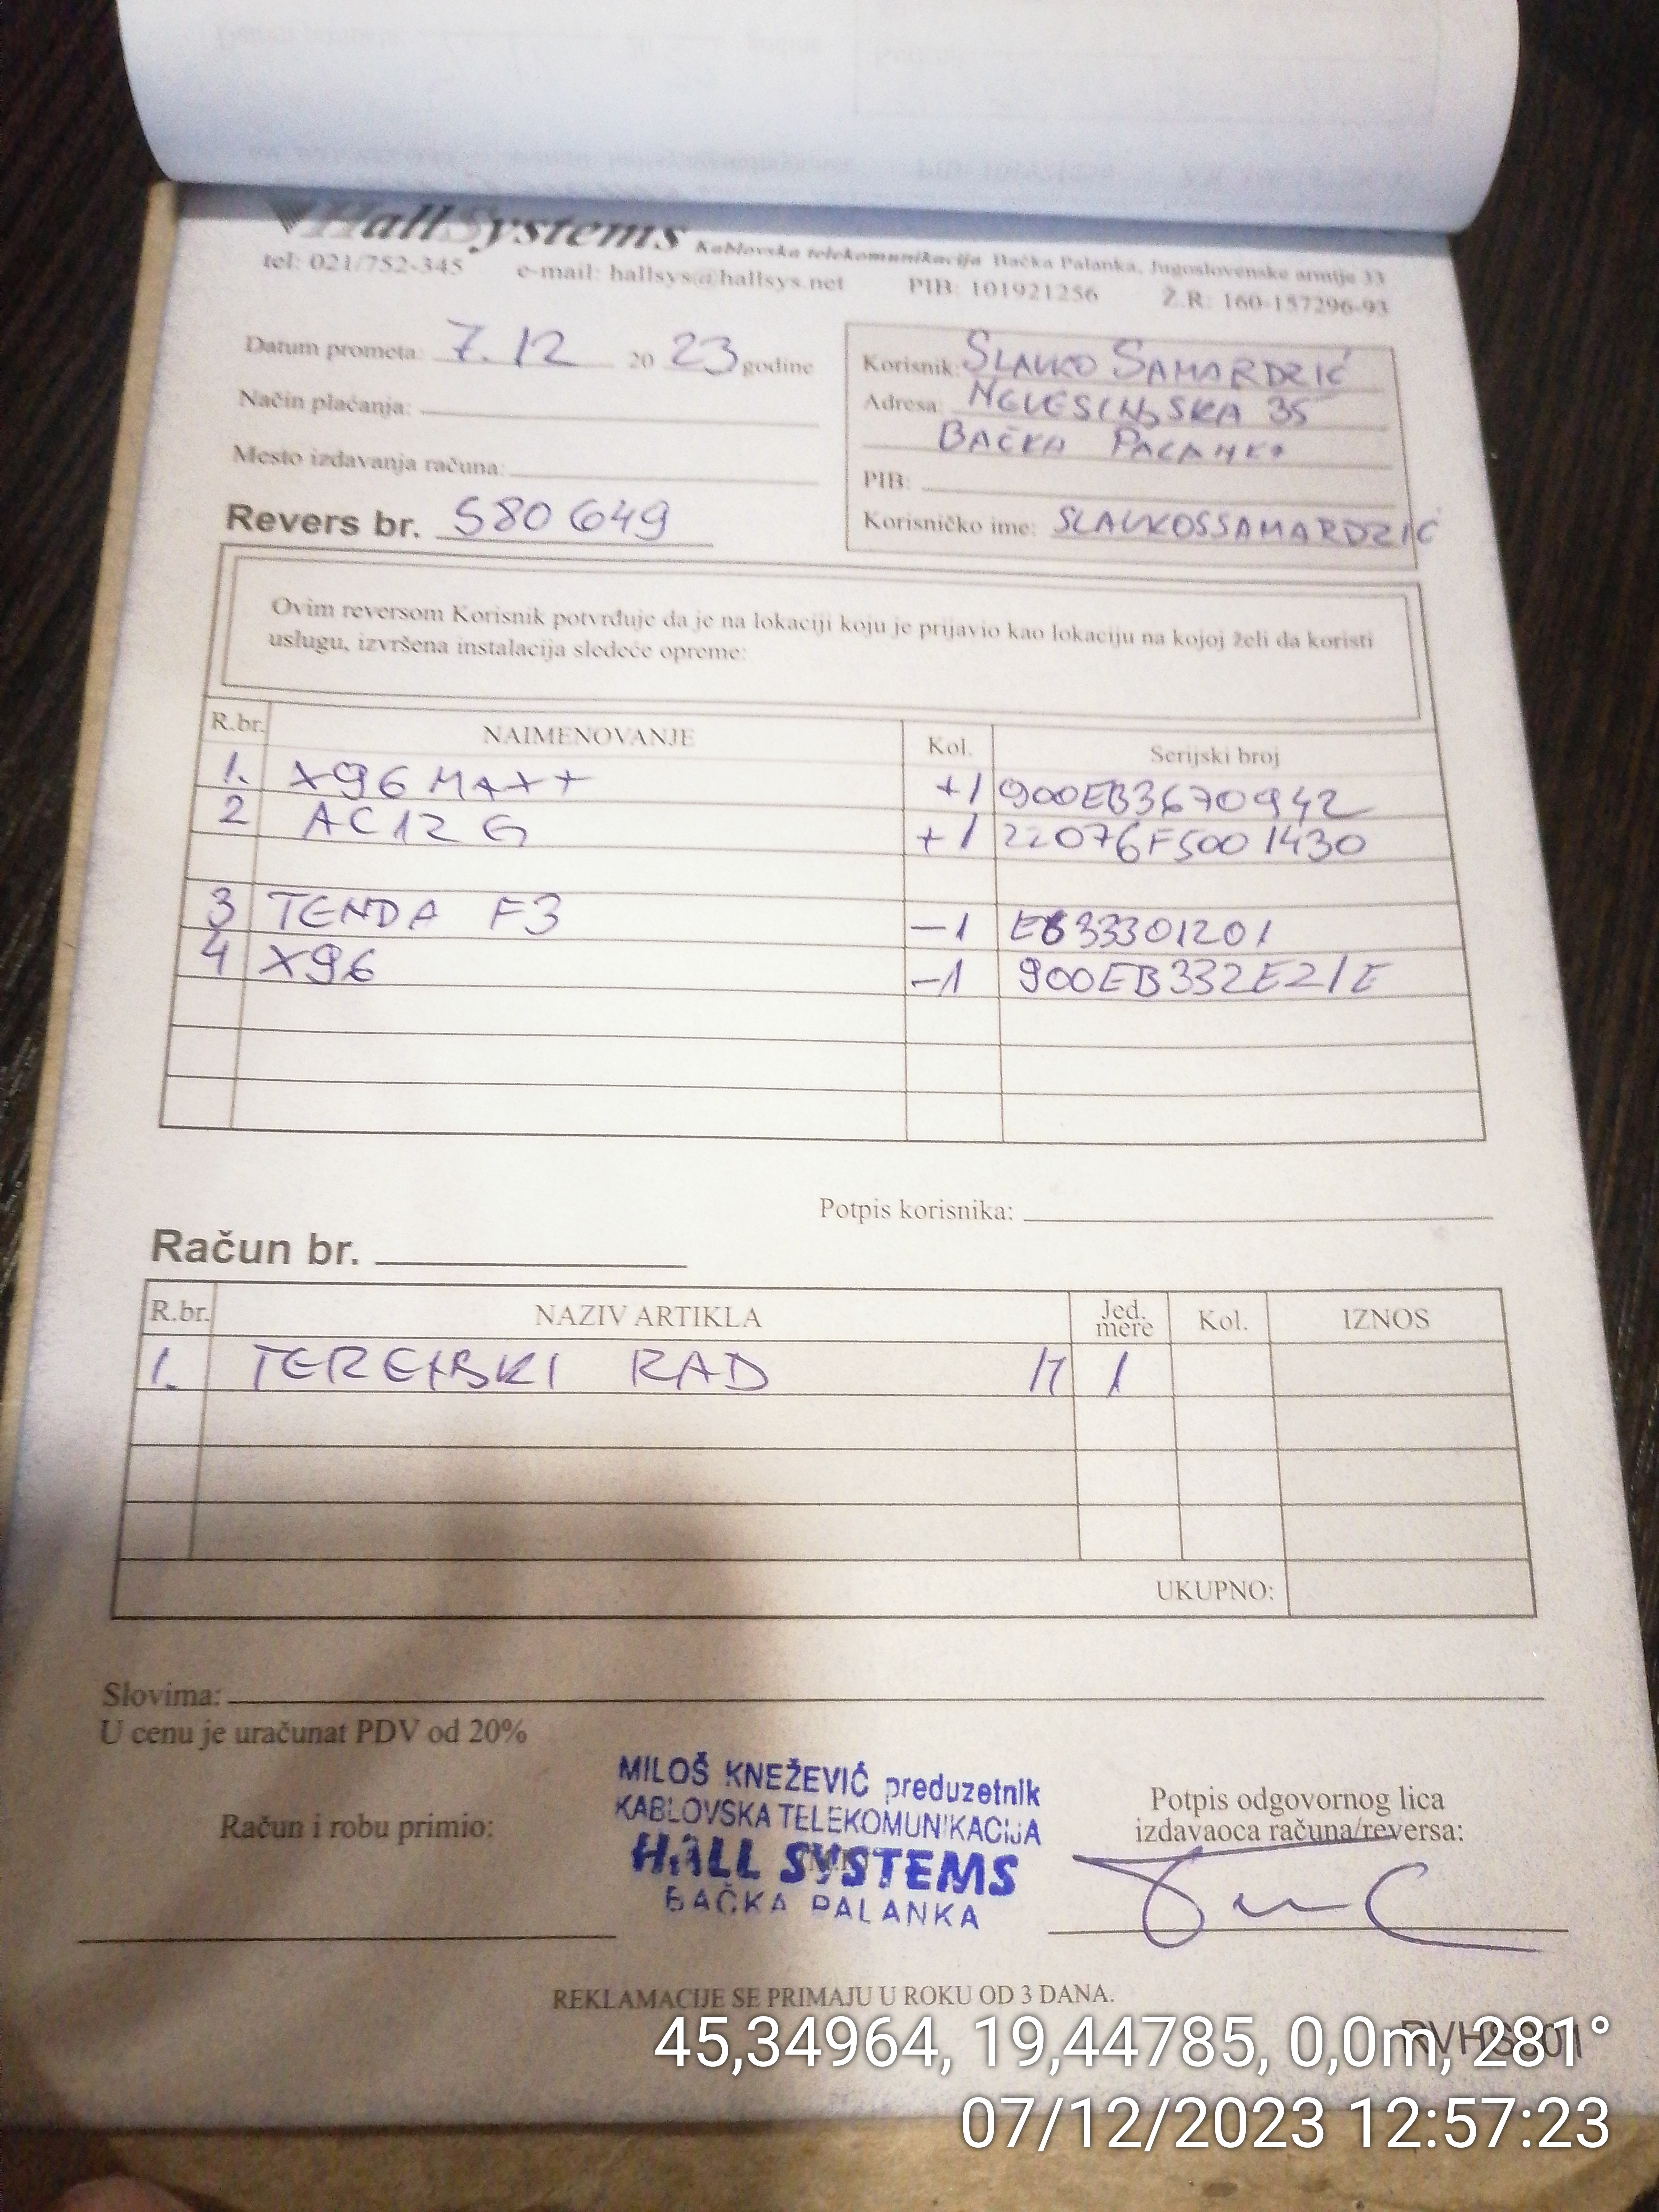 HallSystems Kablovska telekomunikacija Bačka Palanka, Jugoslovenske armije 33
tel: 021/752-345 e-mail: hallsys@hallsys.net PIB: 101921256 Ž.R: 160-157296-93
Datum prometa: 7.12 20 23 godine
Način plaćanja:
Mesto izdavanja računa:
Revers br. S80649
Korisnik: SLAVKO SAMARDZIĆ
Adresa: NEVESINJSKA 35
BAČKA PALANKA
PIB:
Korisničko ime: SLAVKOSSAMARDZIĆ
Ovim reversom Korisnik potvrđuje da je na lokaciji koju je prijavio kao lokaciju na kojoj želi da koristi
uslugu, izvršena instalacija sledeće opreme:
R.br. NAIMENOVANJE Kol. Serijski broj
1. X96 MAX+ +1 900EB3670942
2 AC12 G +1 22076F5001430
3 TENDA F3 -1 E833301201
4 X96 -1 900EB332E21E
Potpis korisnika:
Račun br.
R.br. NAZIV ARTIKLA Jed. mere Kol. IZNOS
1. TERENSKI RAD 1
UKUPNO:
Slovima:
U cenu je uračunat PDV od 20%
MILOŠ KNEŽEVIĆ preduzetnik
KABLOVSKA TELEKOMUNIKACIJA
HALL SYSTEMS
BAČKA PALANKA
Račun i robu primio:
Potpis odgovornog lica
izdavaoca računa/reversa:
REKLAMACIJE SE PRIMAJU U ROKU OD 3 DANA.
RVHS001
45,34964, 19,44785, 0,0m, 281°
07/12/2023 12:57:23